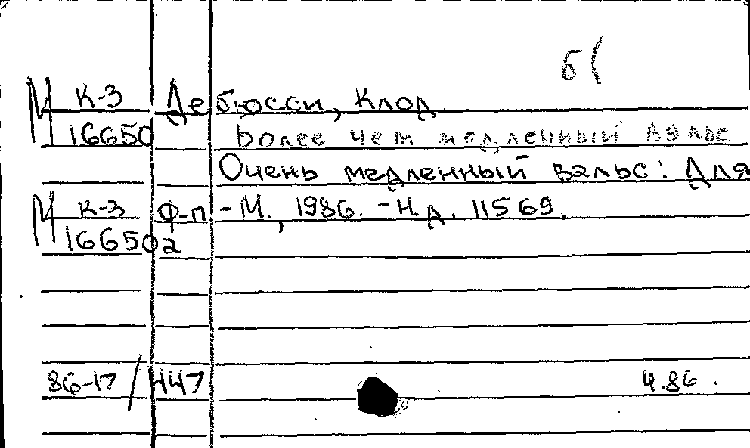 б(
М К-3 Дебюсси, Клод
16650 Более чем медленный вальс
Очень медленный вальс: Для
М К-3 ф-п. - М., 1986. - Н.д. 11569.
16650а
86-17/447 4.86.